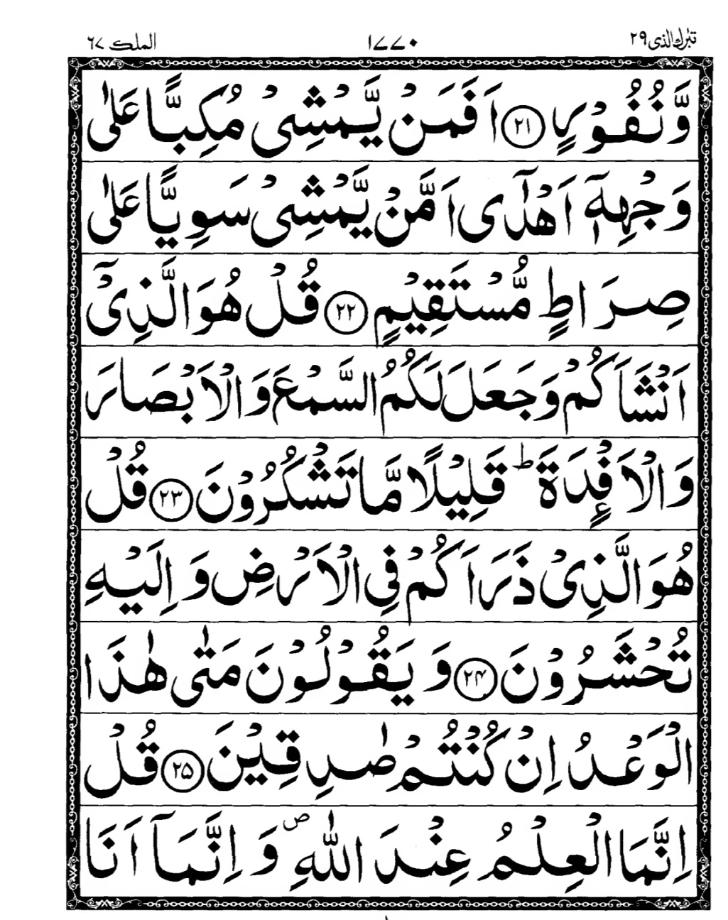 تبٰرك الذی ۲۹ ۱۷۷۰ الملك ۶۷
وَّنُفُوْرٍ ﴿۲۱﴾ اَفَمَنْ يَّمْشِیْ مُكِبًّا عَلٰی
وَجْهِهٖۤ اَهْدٰۤی اَمَّنْ يَّمْشِیْ سَوِيًّا عَلٰی
صِرَاطٍ مُّسْتَقِيْمٍ ﴿۲۲﴾ قُلْ هُوَ الَّذِیْۤ
اَنْشَاَكُمْ وَجَعَلَ لَكُمُ السَّمْعَ وَالْاَبْصَارَ
وَالْاَفْـِٕدَةَ ؕ قَلِيْلًا مَّا تَشْكُرُوْنَ ﴿۲۳﴾ قُلْ
هُوَ الَّذِیْ ذَرَاَكُمْ فِی الْاَرْضِ وَ اِلَيْهِ
تُحْشَرُوْنَ ﴿۲۴﴾ وَ يَقُوْلُوْنَ مَتٰی هٰذَا
الْوَعْدُ اِنْ كُنْتُمْ صٰدِقِيْنَ ﴿۲۵﴾ قُلْ
اِنَّمَا الْعِلْمُ عِنْدَ اللّٰهِ ۪ وَ اِنَّمَاۤ اَنَا